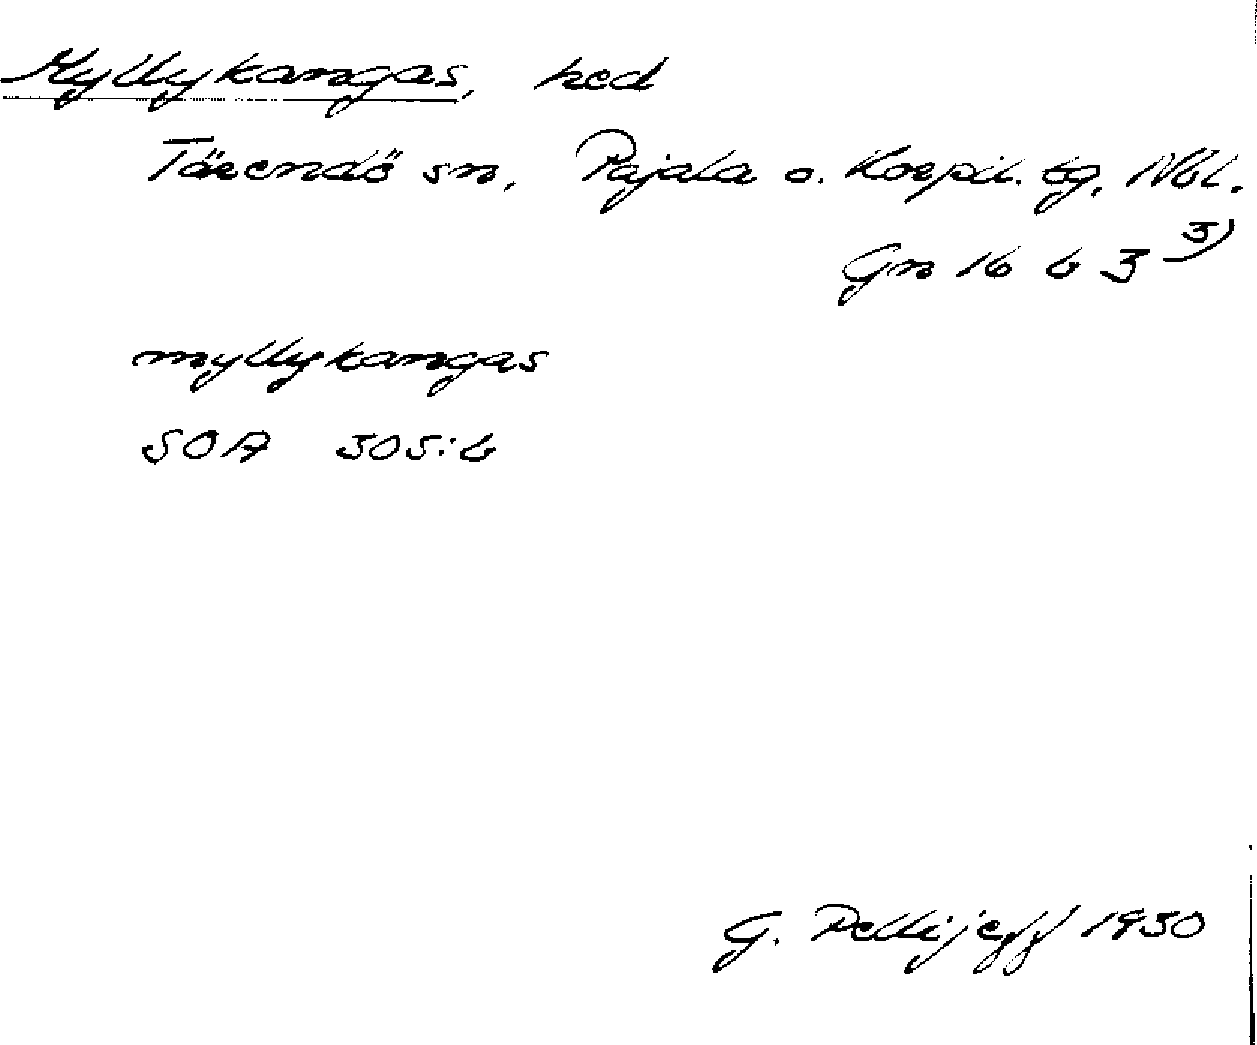 Myllykangas, hed
Tärendö sn, Pajala o. Korpil. tg, Nbl.
Gn 16 b 3 3)
myllykangas
SOA 305:b
G. Pellijeff 1930